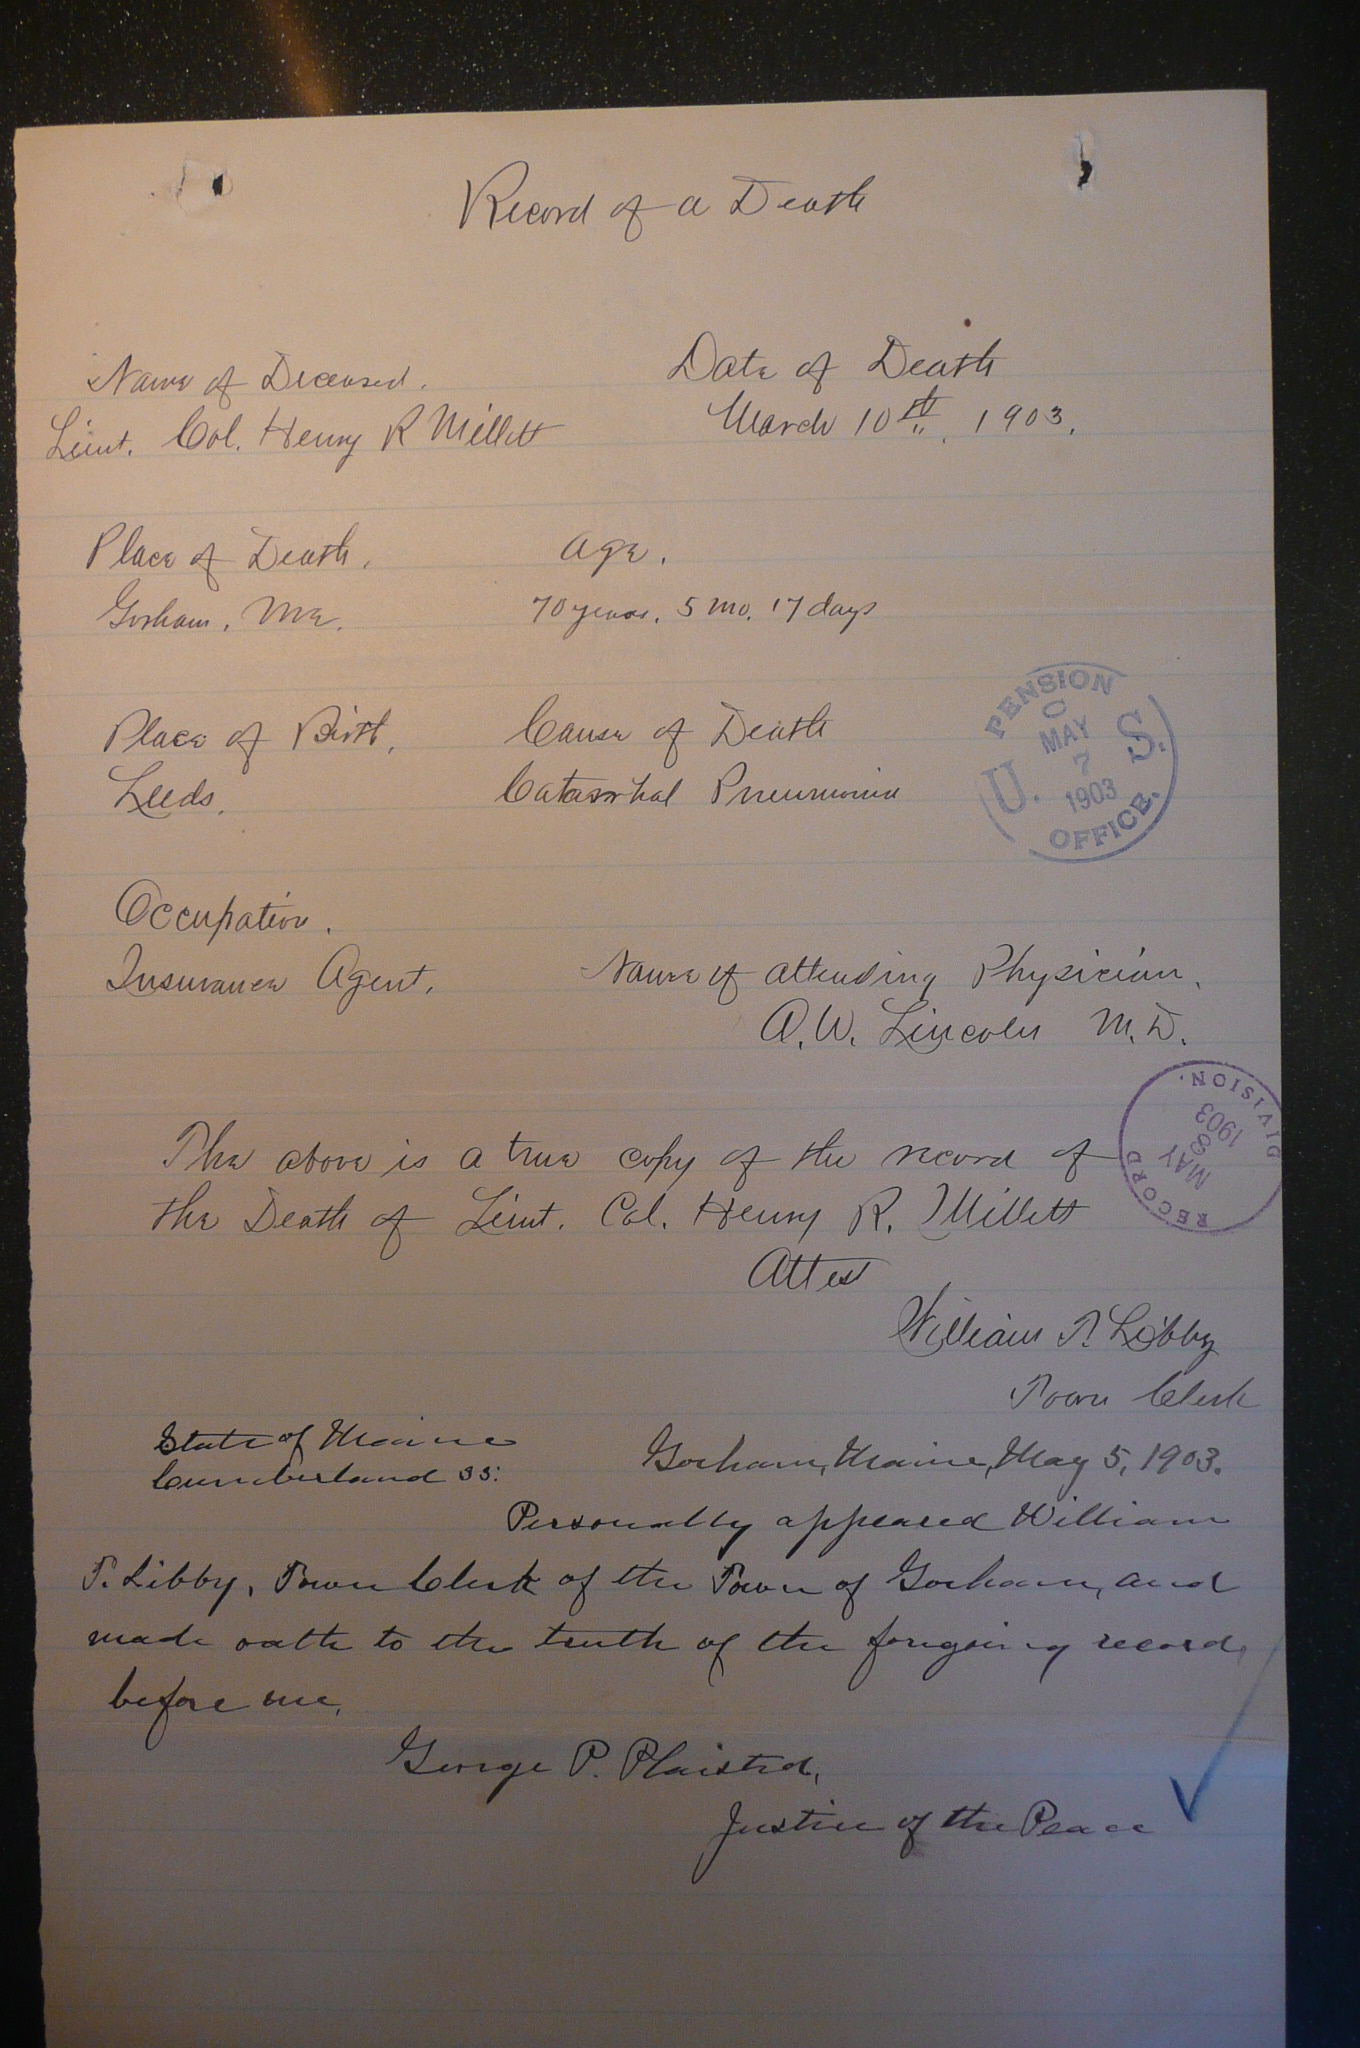 Record of a Death
Name of Deceased.
Lieut. Col. Henry R Millett
Date of Death
March 10th, 1903.
Place of Death.
Gorham, Me.
Age.
70 years. 5 mo. 17 days
Place of Birth.
Leeds.
Cause of Death
Catarrhal Pneumonia
PENSION
MAY
7
1903
U. S.
OFFICE.
Occupation.
Insurance Agent.
Name of attending Physician.
A. W. Lincoln M. D.
RECORD DIVISION.
MAY
8
1903
The above is a true copy of the record of
the Death of Lieut. Col. Henry R. Millett
Attest
William T. Libby
Town Clerk
State of Maine
Cumberland ss:
Gorham, Maine, May 5, 1903.
Personally appeared William
T. Libby, Town Clerk of the Town of Gorham, and
made oath to the truth of the foregoing record,
before me,
George P. Plaisted,
Justice of the Peace